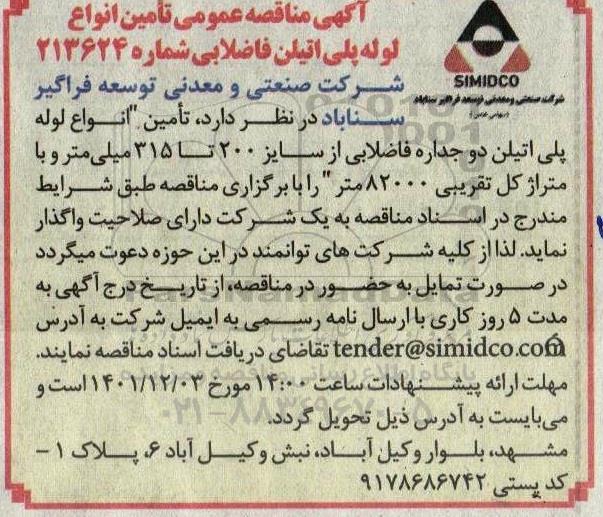 آگهی مناقصه عمومی تأمین انواع
لوله پلی اتیلن فاضلابی شماره ۲۱۳۶۲۴
SIMIDCO
شرکت صنعتی و معدنی توسعه فراگیر سناباد
(سهامی خاص)
شرکت صنعتی و معدنی توسعه فراگیر
سناباد در نظر دارد، تأمین "انواع لوله
پلی اتیلن دو جداره فاضلابی از سایز ۲۰۰ تا ۳۱۵ میلی‌متر و با
متراژ کل تقریبی ۸۲۰۰۰ متر" را با برگزاری مناقصه طبق شرایط
مندرج در اسناد مناقصه به یک شرکت دارای صلاحیت واگذار
نماید. لذا از کلیه شرکت های توانمند در این حوزه دعوت میگردد
در صورت تمایل به حضور در مناقصه، از تاریخ درج آگهی به
مدت ۵ روز کاری با ارسال نامه رسمی به ایمیل شرکت به آدرس
tender@simidco.com تقاضای دریافت اسناد مناقصه نمایند.
مهلت ارائه پیشنهادات ساعت ۱۴:۰۰ مورخ ۱۴۰۱/۱۲/۰۳ است و
می‌بایست به آدرس ذیل تحویل گردد.
مشهد، بلوار وکیل آباد، نبش وکیل آباد ۶، پلاک ۱ -
کد پستی ۹۱۷۸۶۸۶۷۴۲